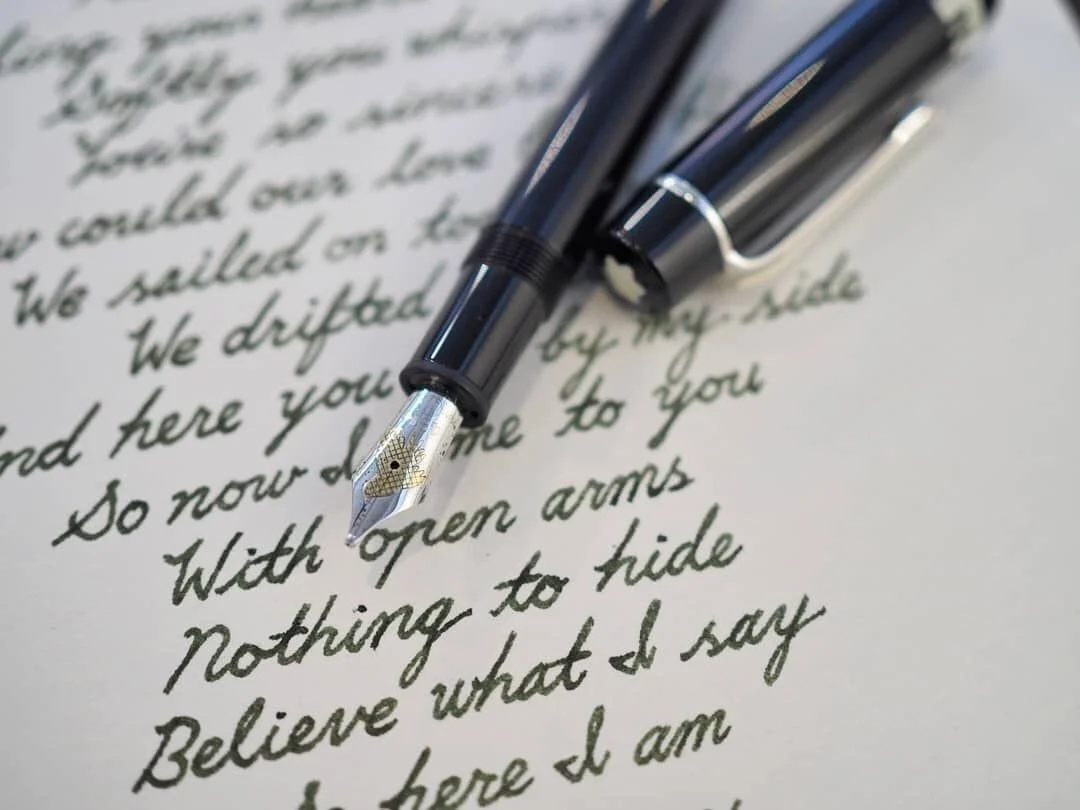 your
Softly you whisper
You're so sincere
could our love
We sailed on
We drifted
here you by my side
So now I me to you
With open arms
Nothing to hide
Believe what I say
here I am